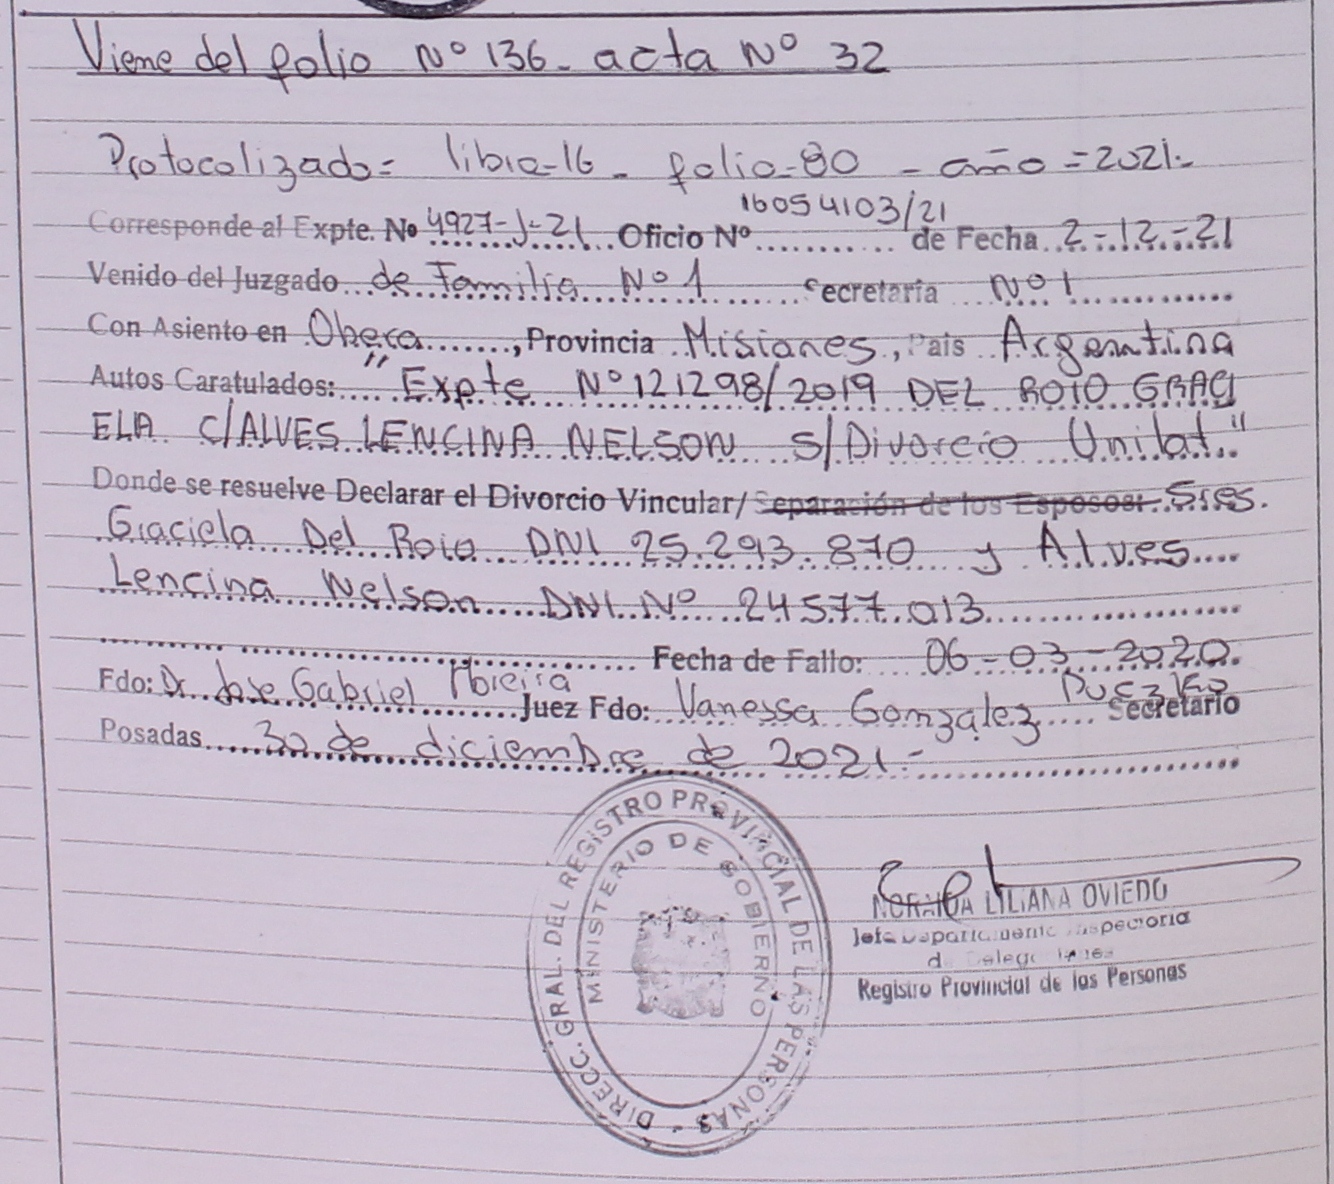 Viene del folio Nº 136 - acta Nº 32
Protocolizado = libro-16 - folio-80 - año = 2021.-
16054103/21
Corresponde al Expte. Nº 4927-J-21 Oficio Nº.......... de Fecha 2-12-21
Venido del Juzgado de Familia Nº 1 Secretaría Nº 1
Con Asiento en Obera, Provincia Misiones, País Argentina
Autos Caratulados: "Expte Nº 121298/2019 DEL ROIO GRACI
ELA C/ALVES LENCINA NELSON S/Divorcio Unilat."
Donde se resuelve Declarar el Divorcio Vincular/ Separación de los Esposos: Sres.
Graciela Del Roio DNI 25.293.870 y Alves
Lencina Nelson DNI Nº 24577.013
Fecha de Fallo: 06-03-2020.
Fdo: Dr. Jose Gabriel Moreira Juez Fdo: Vanessa Gonzalez Secretario
Posadas 30 de diciembre de 2021.-
DIRECC. GRAL. DEL REGISTRO PROVINCIAL DE LAS PERSONAS -
MINISTERIO DE GOBIERNO
LILIANA OVIEDO
Jefa Departamento Inspectoria
Registro Provincial de las Personas